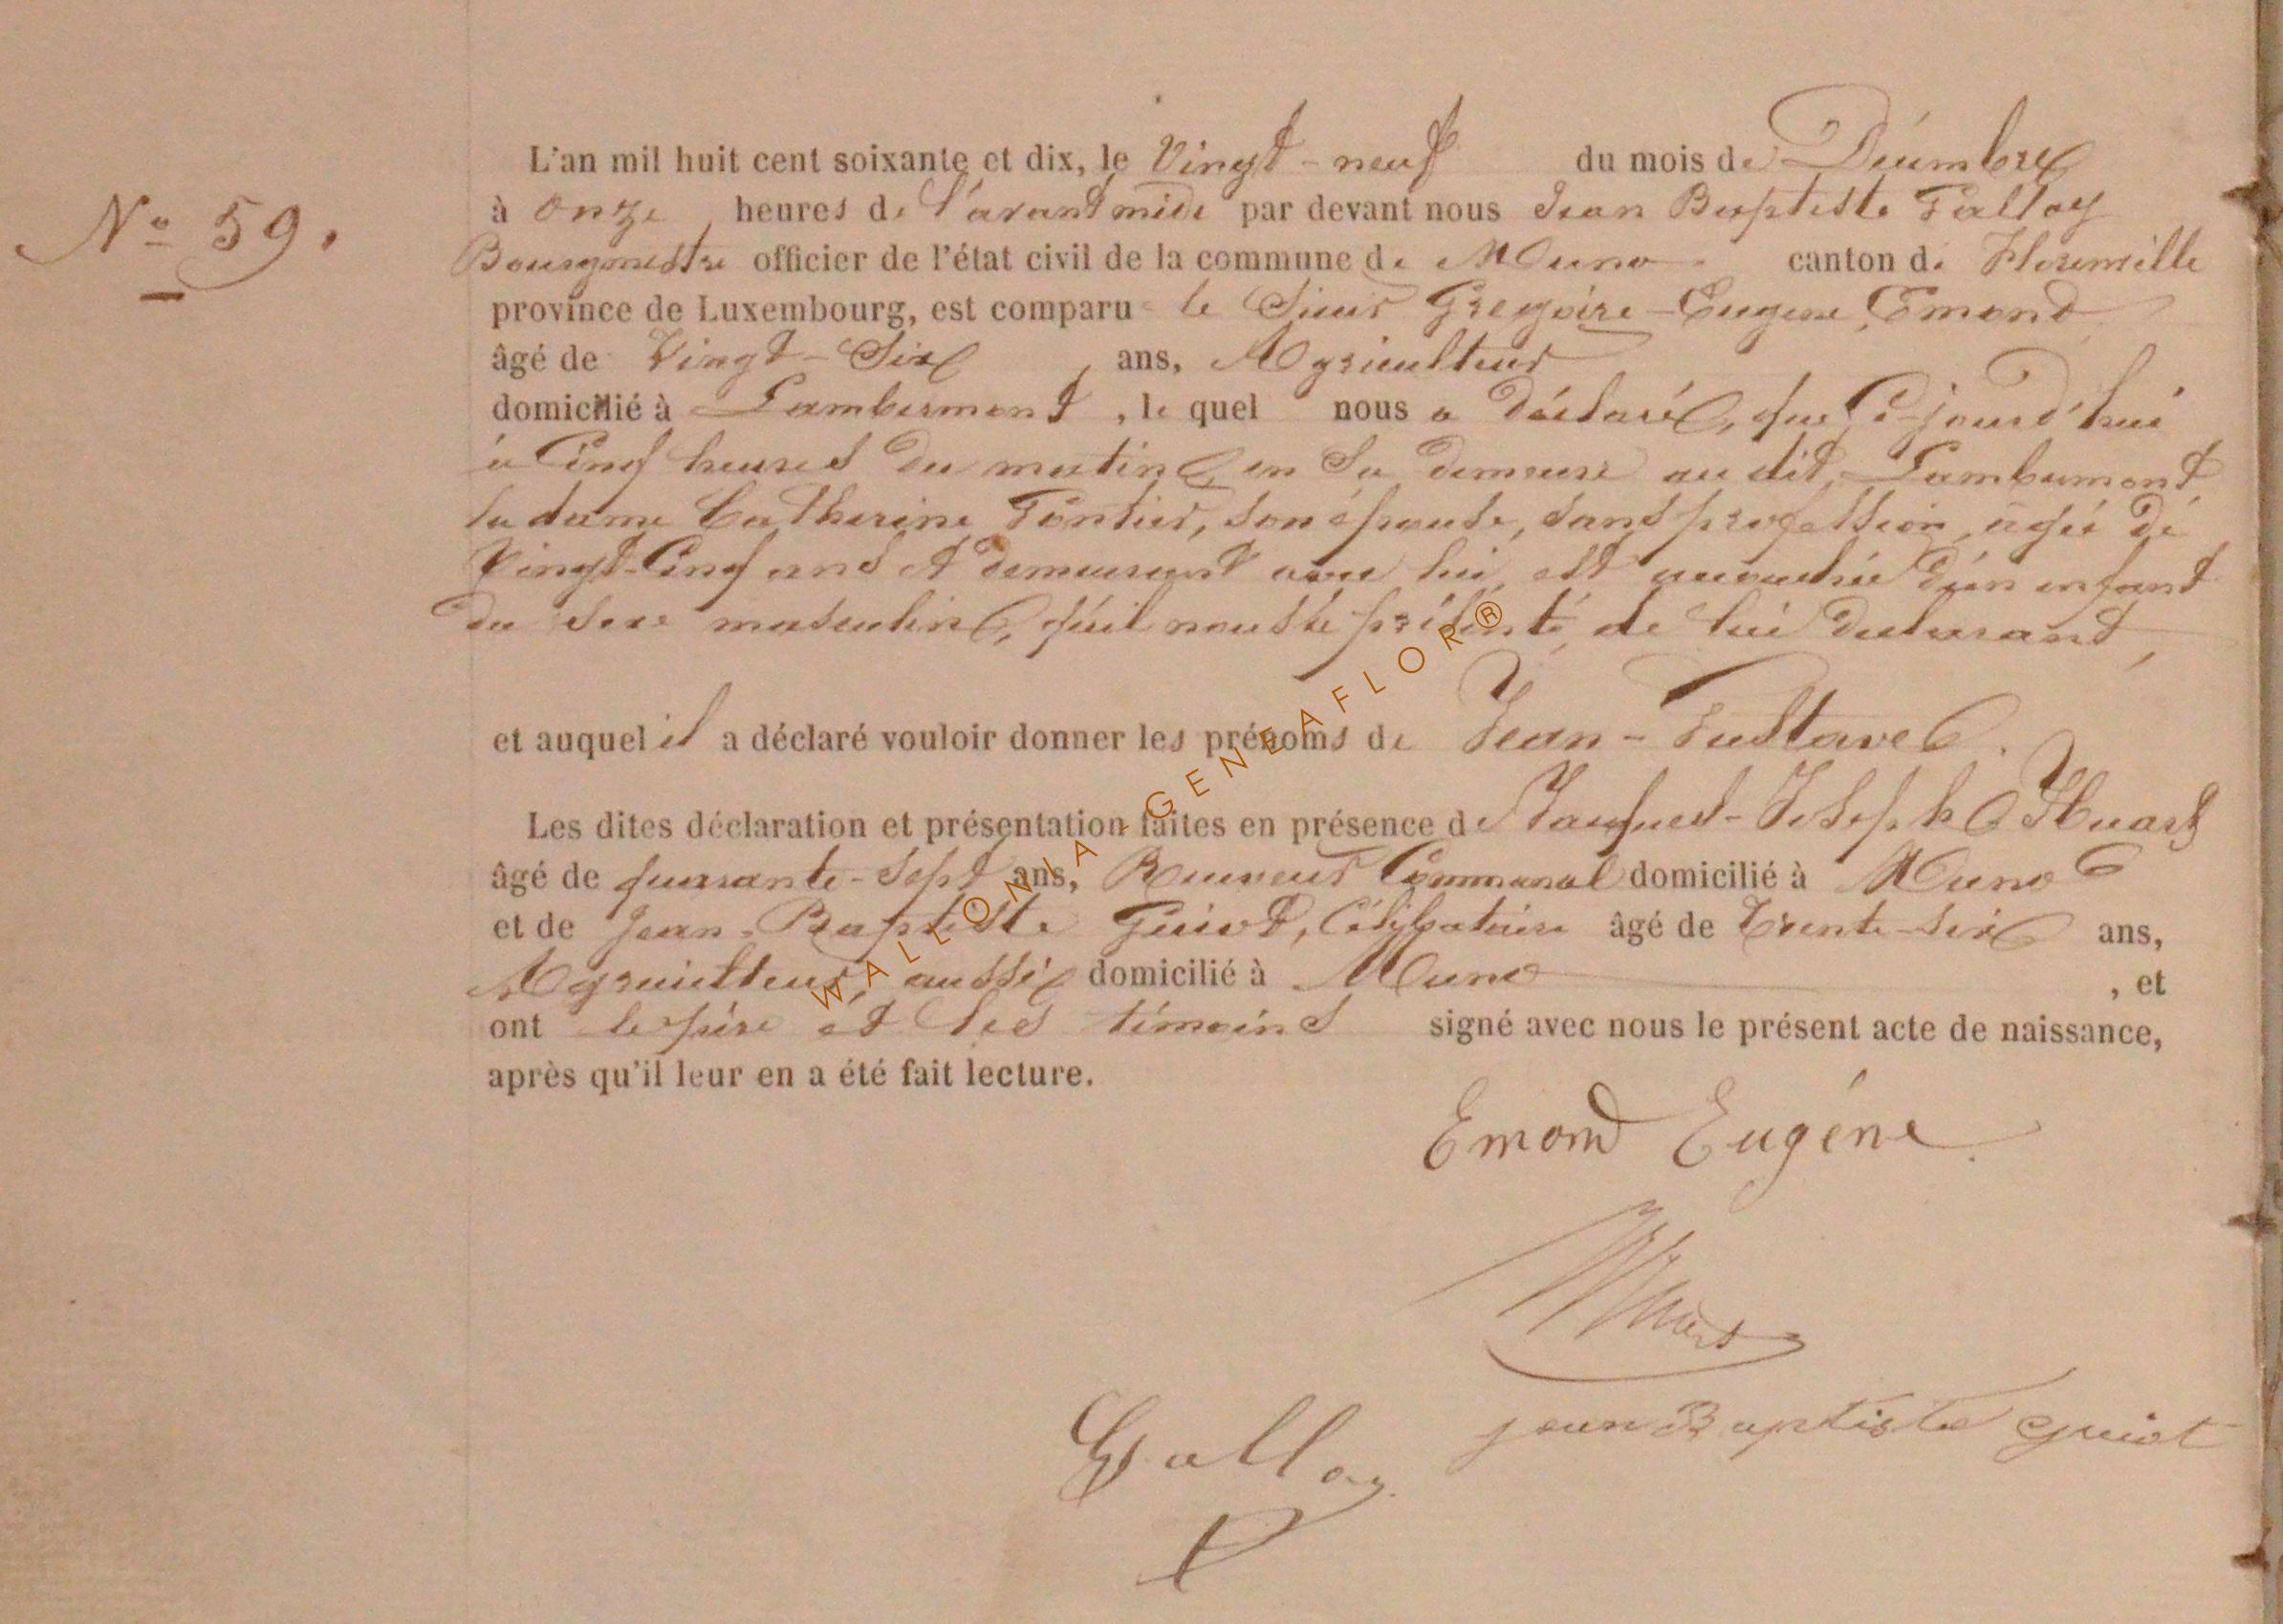 L'an mil huit cent soixante et dix, le Vingt-neuf du mois de Décembre
N° 59.
à onze heures de l'avant midi par devant nous Jean Baptiste Galloy
Bourgmestre officier de l'état civil de la commune de Muno canton de Florenville
province de Luxembourg, est comparu le Sieur Gregoire-Eugene Emond
âgé de Vingt-Six ans, Agriculteur
domicilié à Lambermont, le quel nous a déclaré, que Ce-jourd'hui
à Cinq heures du matin, en Sa demeure au dit Lambermont
la dame Catherine Pontier, son épouse, sans profession, agée de
Vingt-Cinq ans et demeurant avec lui, est accouchée d'un enfant
du Sexe masculin, qu'il nous a présenté, de lui déclarant,
et auquel il a déclaré vouloir donner les prénoms de Jean-Gustave.
Les dites déclaration et présentation faites en présence de Jacques-Joseph Huart
âgé de quarante-Sept ans, Receveur Communal domicilié à Muno
et de Jean-Baptiste Guiot, Célibataire âgé de Trente-six ans,
Agriculteur, aussi domicilié à Muno, et
ont le père et les témoins signé avec nous le présent acte de naissance,
après qu'il leur en a été fait lecture.
Emond Eugéne
Huart
Galloy
jean Baptiste guiot
WALLONIA-GENEAFLOR®